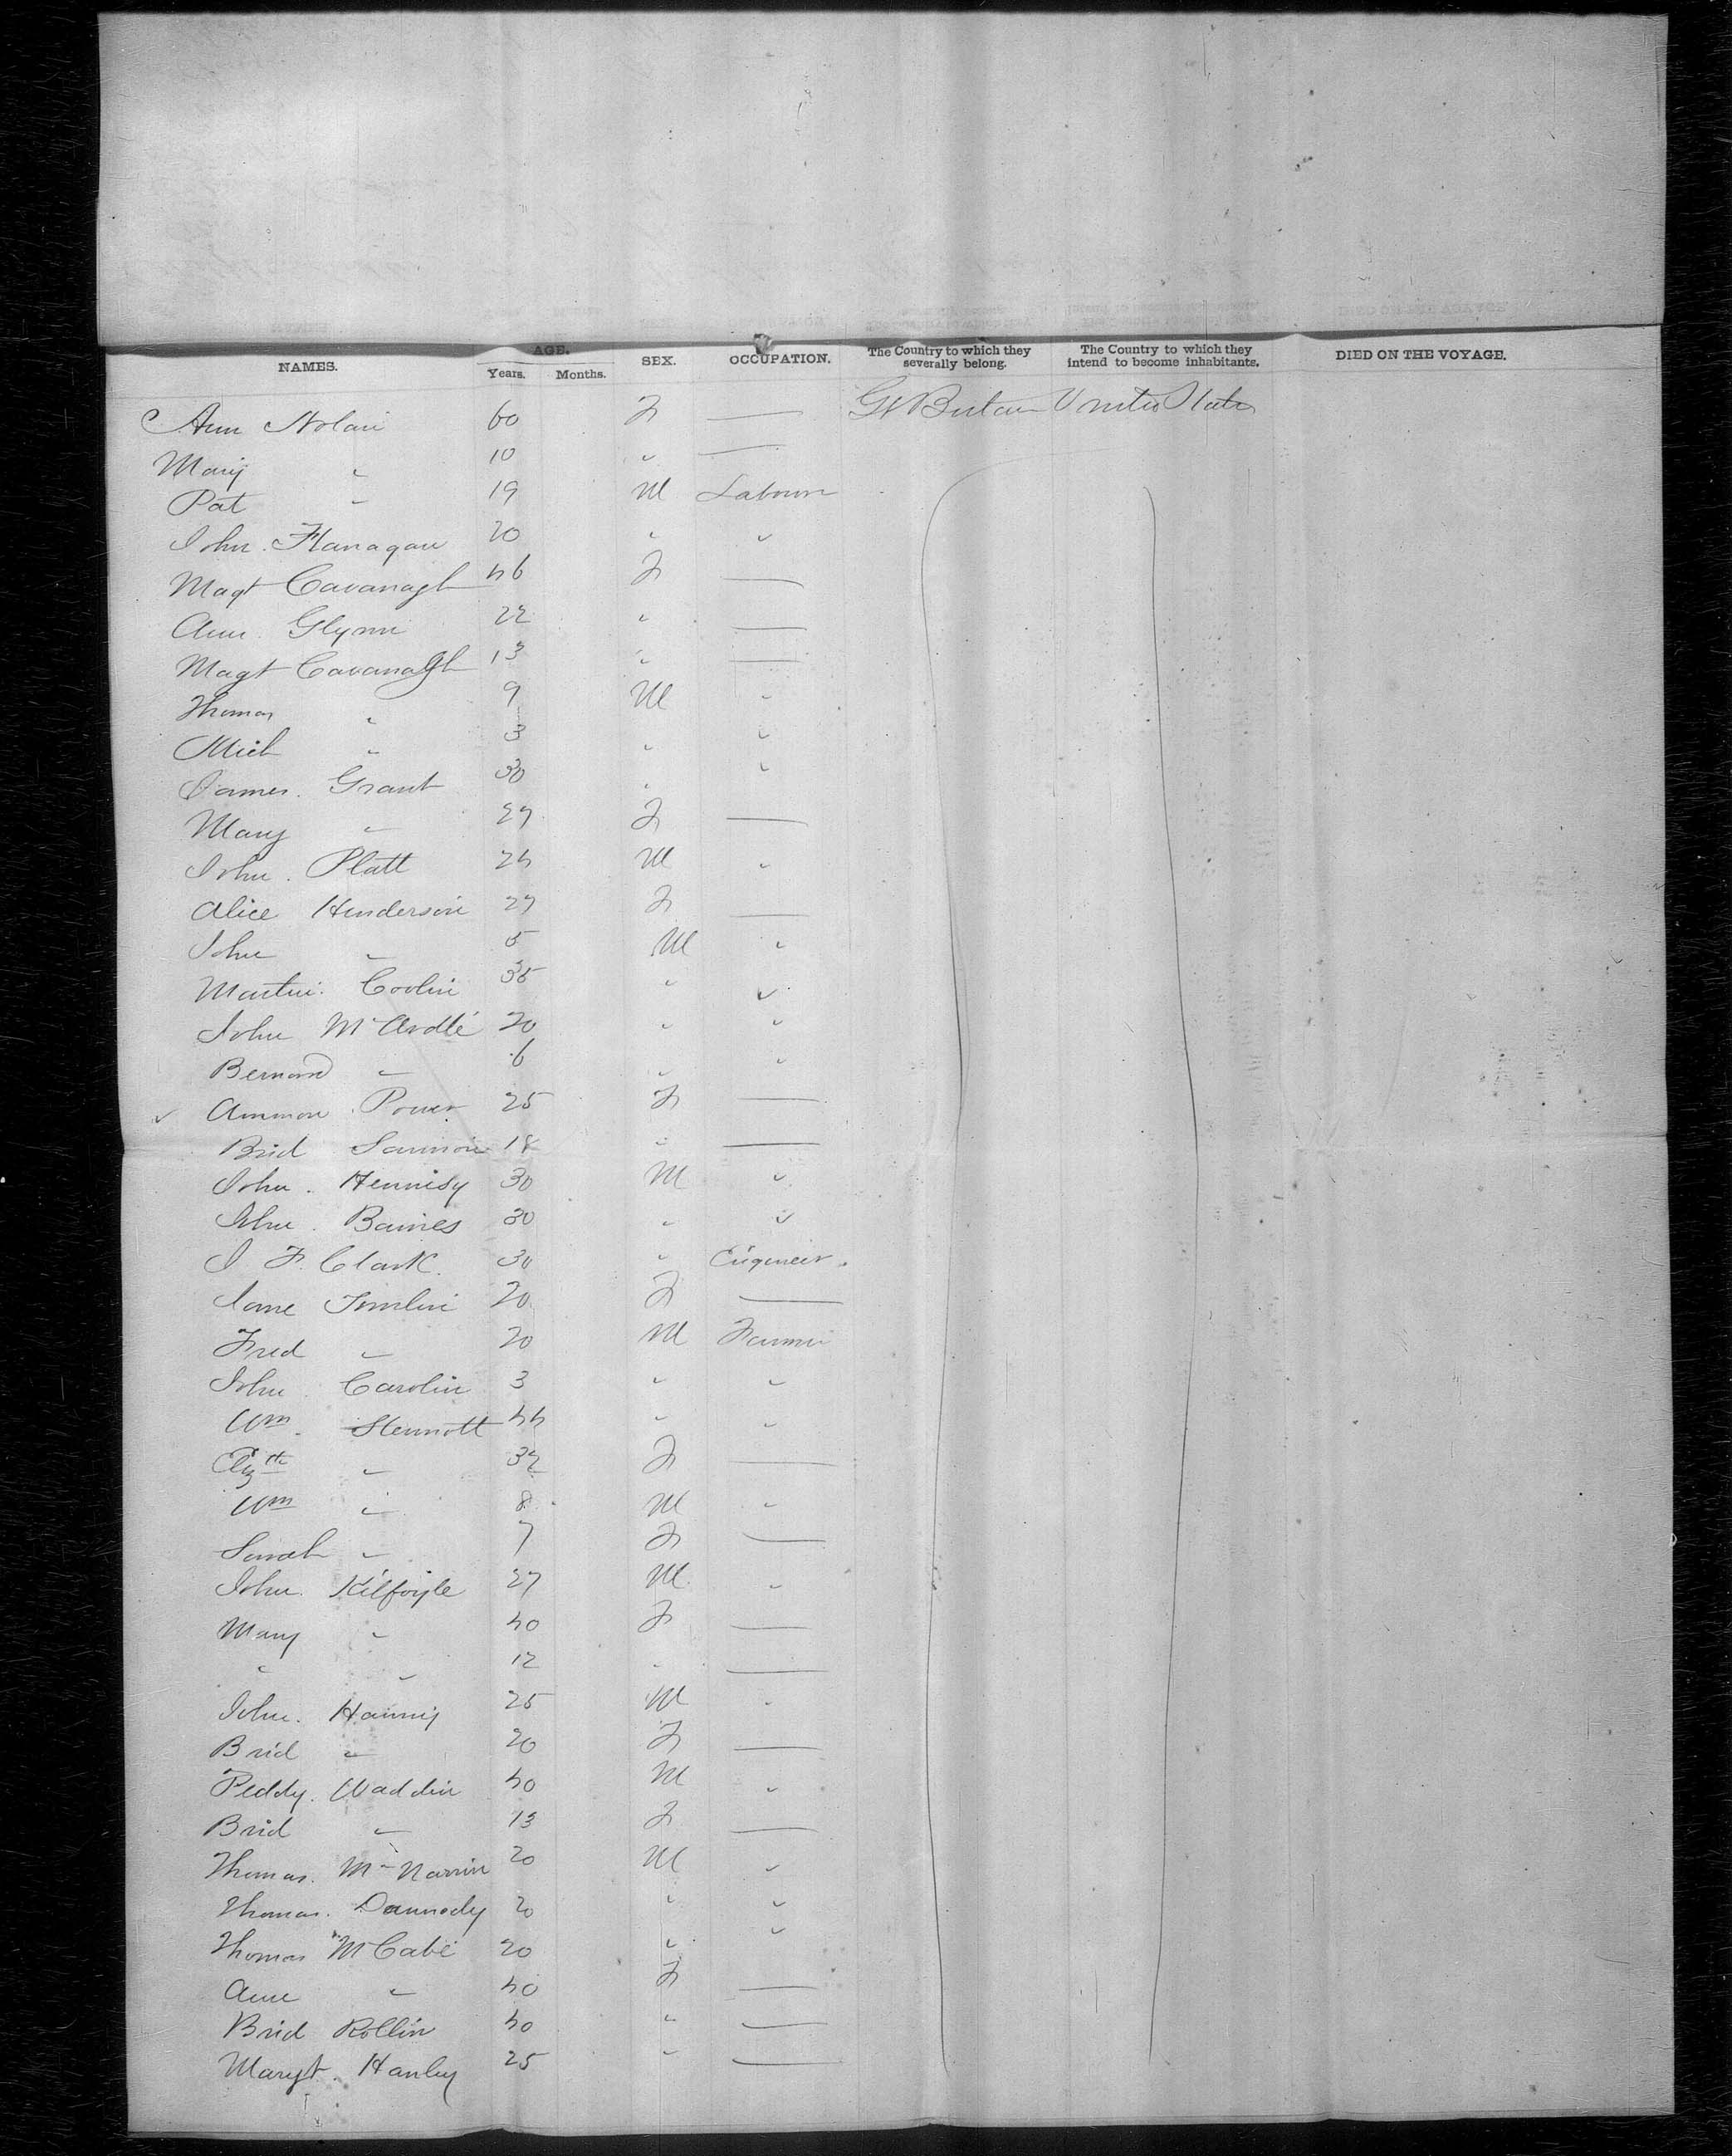 NAMES. AGE. Years. Months. SEX. OCCUPATION. The Country to which they severally belong. The Country to which they intend to become inhabitants. DIED ON THE VOYAGE.
Ann Nolan 60 F — Gt Britain United States
Mary " 10 " —
Pat " 19 M Labourer
John Flanagan 20 " "
Magt Cavanagh 46 F —
Ann Glynn 22 " —
Magt Cavanagh 13 " —
Thomas " 9 M "
Mich " 3 " "
James Grant 30 " "
Mary " 27 F —
John Platt 24 M "
Alice Henderson 27 F —
John " 5 M "
Martin Coolin 35 " "
John McArdle 20 " "
Bernard " 6 " "
Power 25 F —
Brid 18 " —
John Hennisy 30 M "
John Baines 30 " "
J F. Clark 30 " Engineer
Jane Tomlin 20 F —
Fred " 20 M Farmer
John Carolin 3 " "
Wm Stennott 44 " "
Elizth " 32 F —
Wm " 8 M "
Sarah " 7 F —
John Kilfoyle 27 M "
Mary " 40 F —
" " 12 " —
John Hannig 25 M "
Brid " 20 F —
Peddy Waddin 40 M "
Brid " 13 F —
Thomas 20 M "
Thomas Dannody 20 " "
Thomas McCabe 20 " "
Ann " 40 F —
Brid Rollin 40 " —
Margt Hanley 25 " —